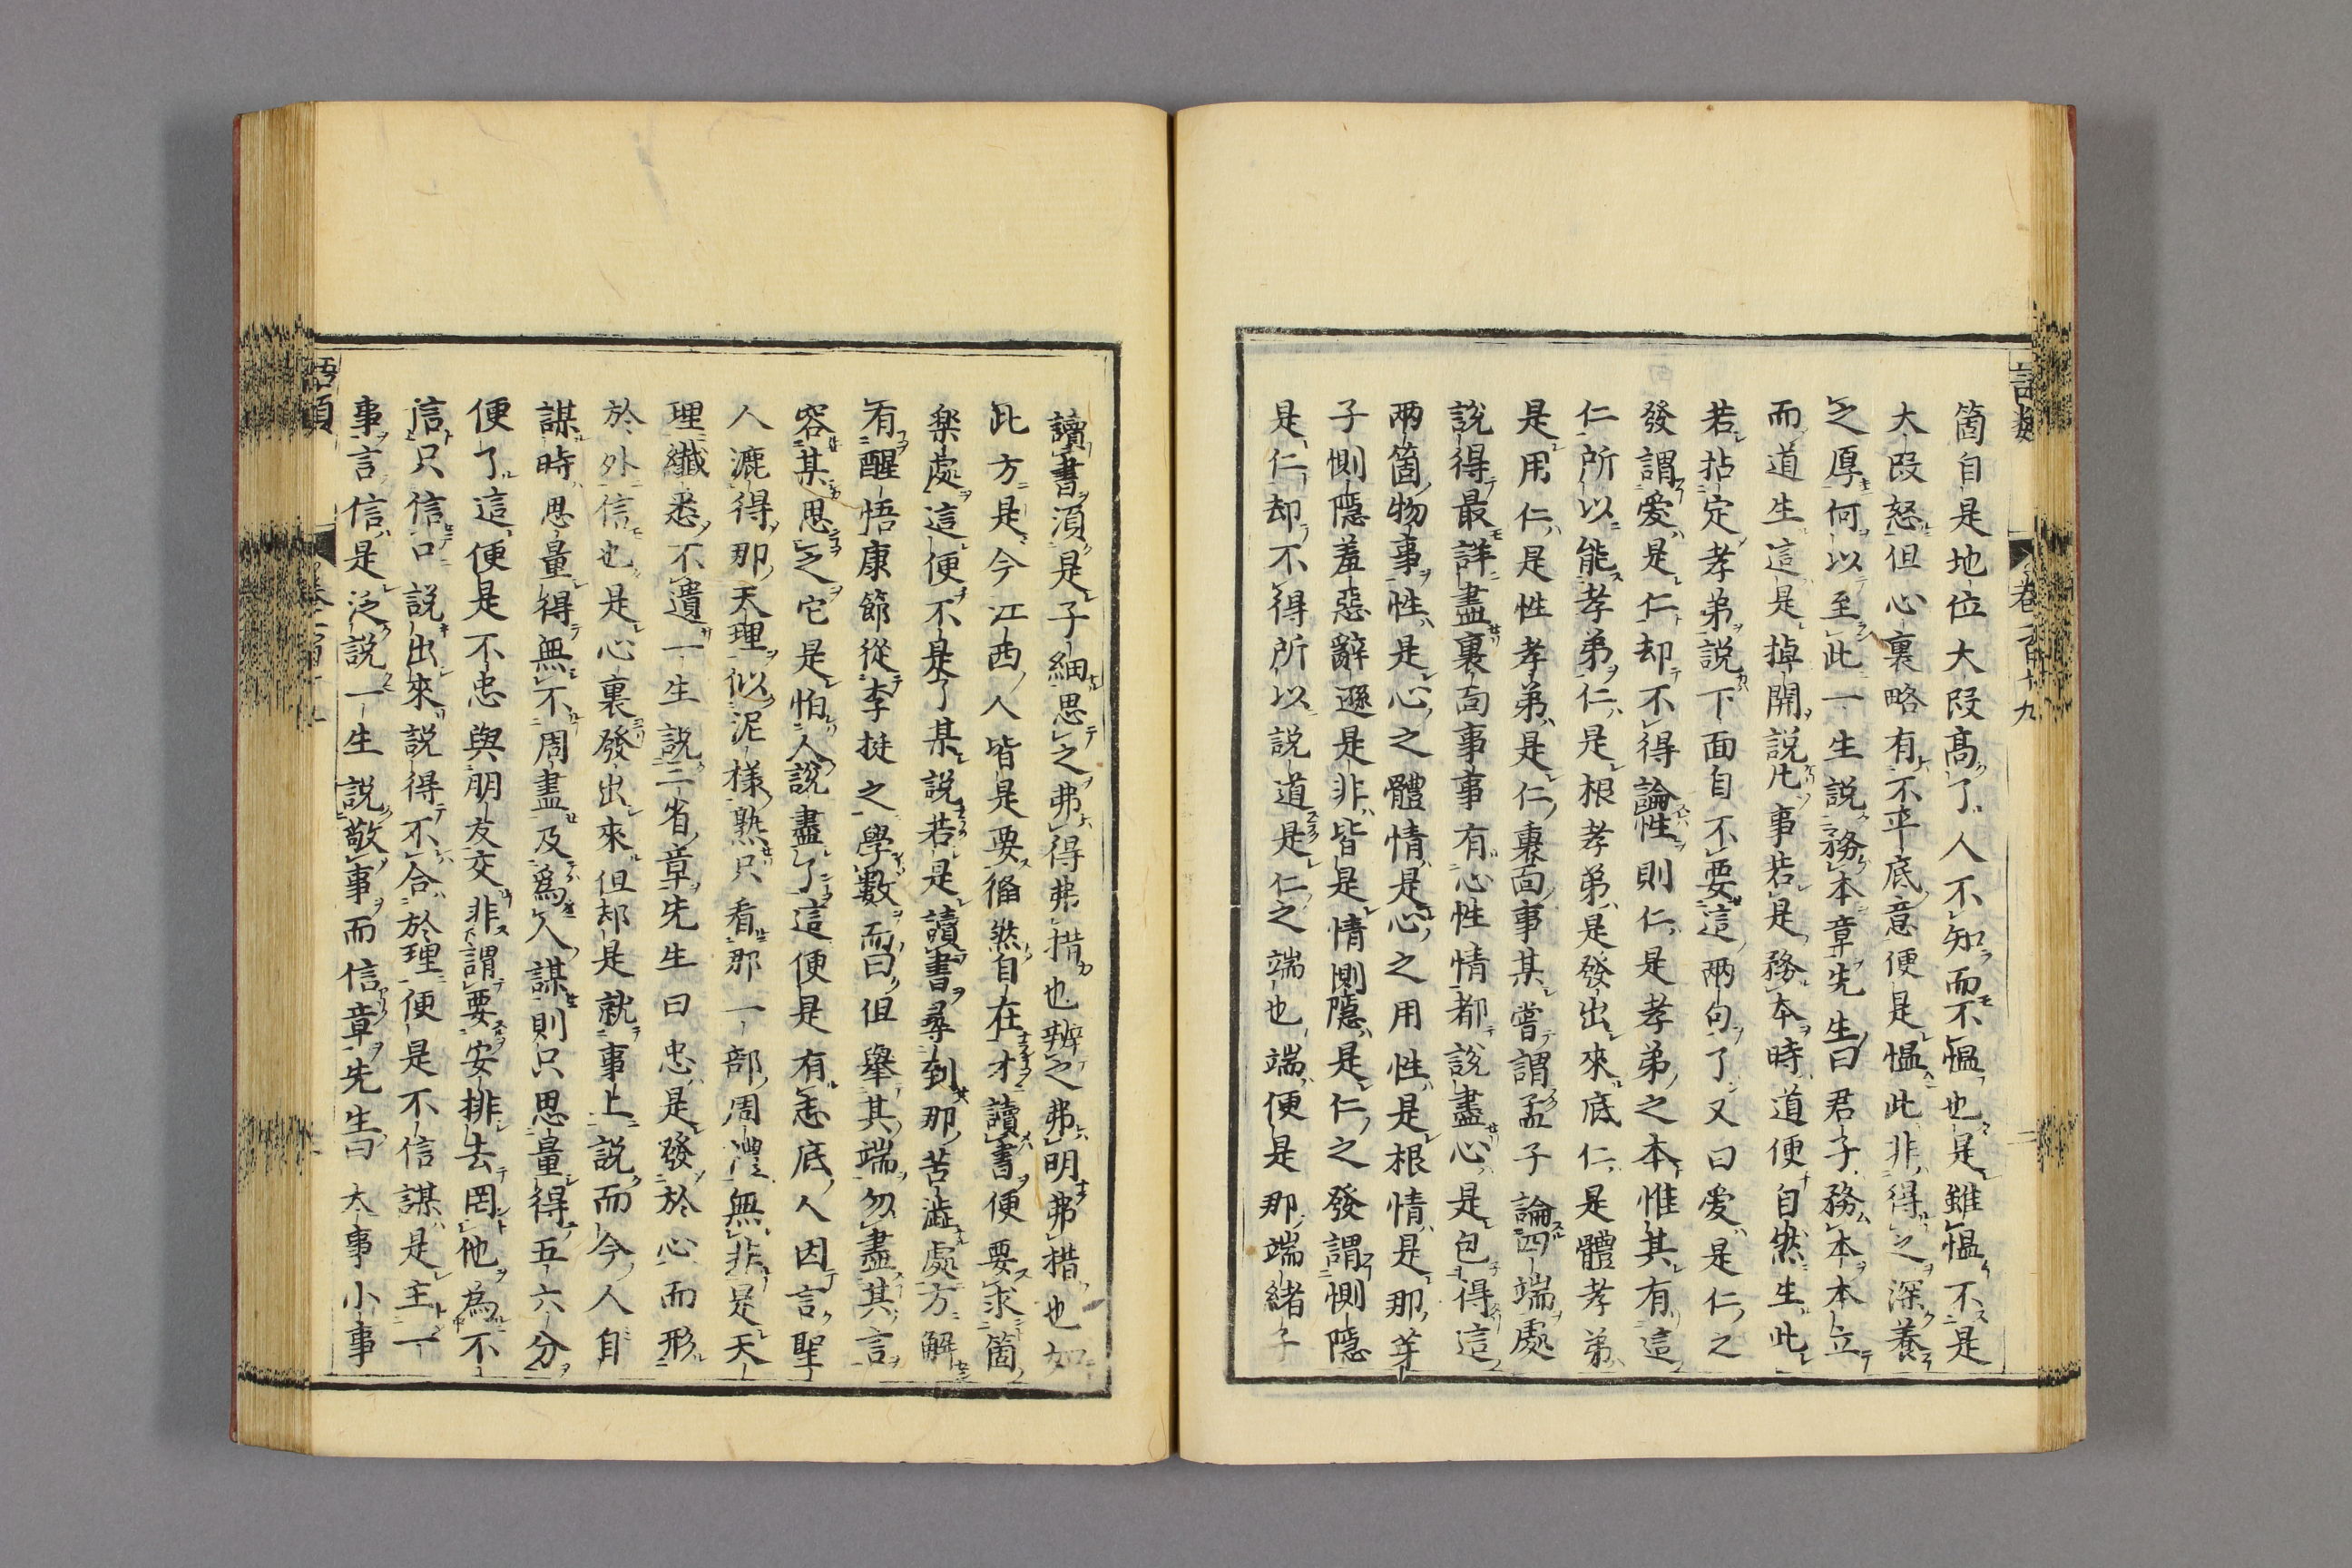 箇自是地位大段高了人不知而不慍也是雖慍不是
大段怒但心裏略有不平底意便是慍此非得之深養
之厚何以至此一生說務本章先生曰君子務本本立
而道生這是掉開說凡事若是務本時道便自然生此
若拈定孝弟說下面自不要這兩句了又曰愛是仁之
發謂愛是仁却不得論性則仁是孝弟之本惟其有這
仁所以能孝弟仁是根孝弟是發出來底仁是體孝弟
是用仁是性孝弟是仁裏面事某嘗謂孟子論四端處
說得最詳盡裏面事事有心性情都說盡心是包得這
兩箇物事性是心之體情是心之用性是根情是那芽
子惻隱羞惡辭遜是非皆是情惻隱是仁之發謂惻隱
是仁却不得所以說道是仁之端也端便是那端緒子
讀書須是子細思之弗得弗措也辨之弗明弗措也如
此方是今江西人皆是要偹然自在才讀書便要求箇
樂處這便不是了某說若是讀書尋到那苦澁處方解
有醒悟康節從李挺之學數而曰但舉其端勿盡其言
容某思之它是怕人說盡了這便是有志底人因言聖
人漉得那天理似泥樣熟只看那一部周禮無非是天
理纖悉不遺一生說三省章先生曰忠是發於心而形
於外信也是心裏發出來但却是就事上說而今人自
謀時思量得無不周盡及爲人謀則只思量得五六分
便了這便是不忠與朋友交非謂要安排去罔他為不
信只信口說出來說得不合於理便是不信謀是主一
事言信是泛說一生說敬事而信章先生曰大事小事
語類
卷一百十九